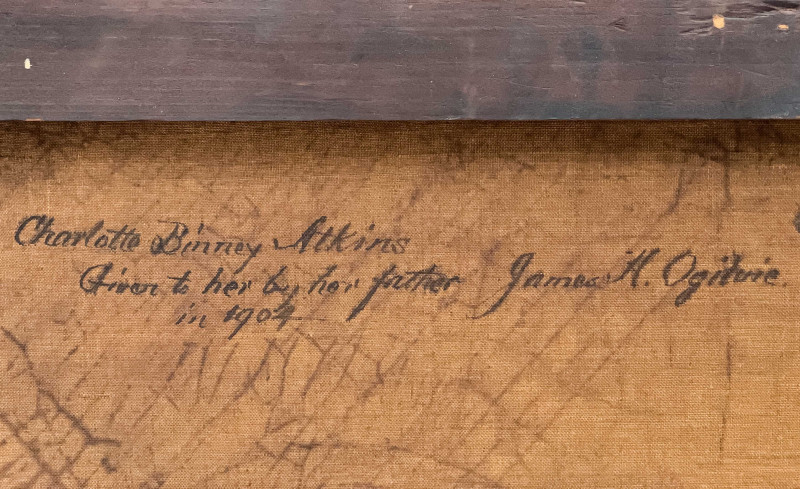 Charlotte Binney Atkins
Given to her by her father James H. Ogilvie.
in 1904